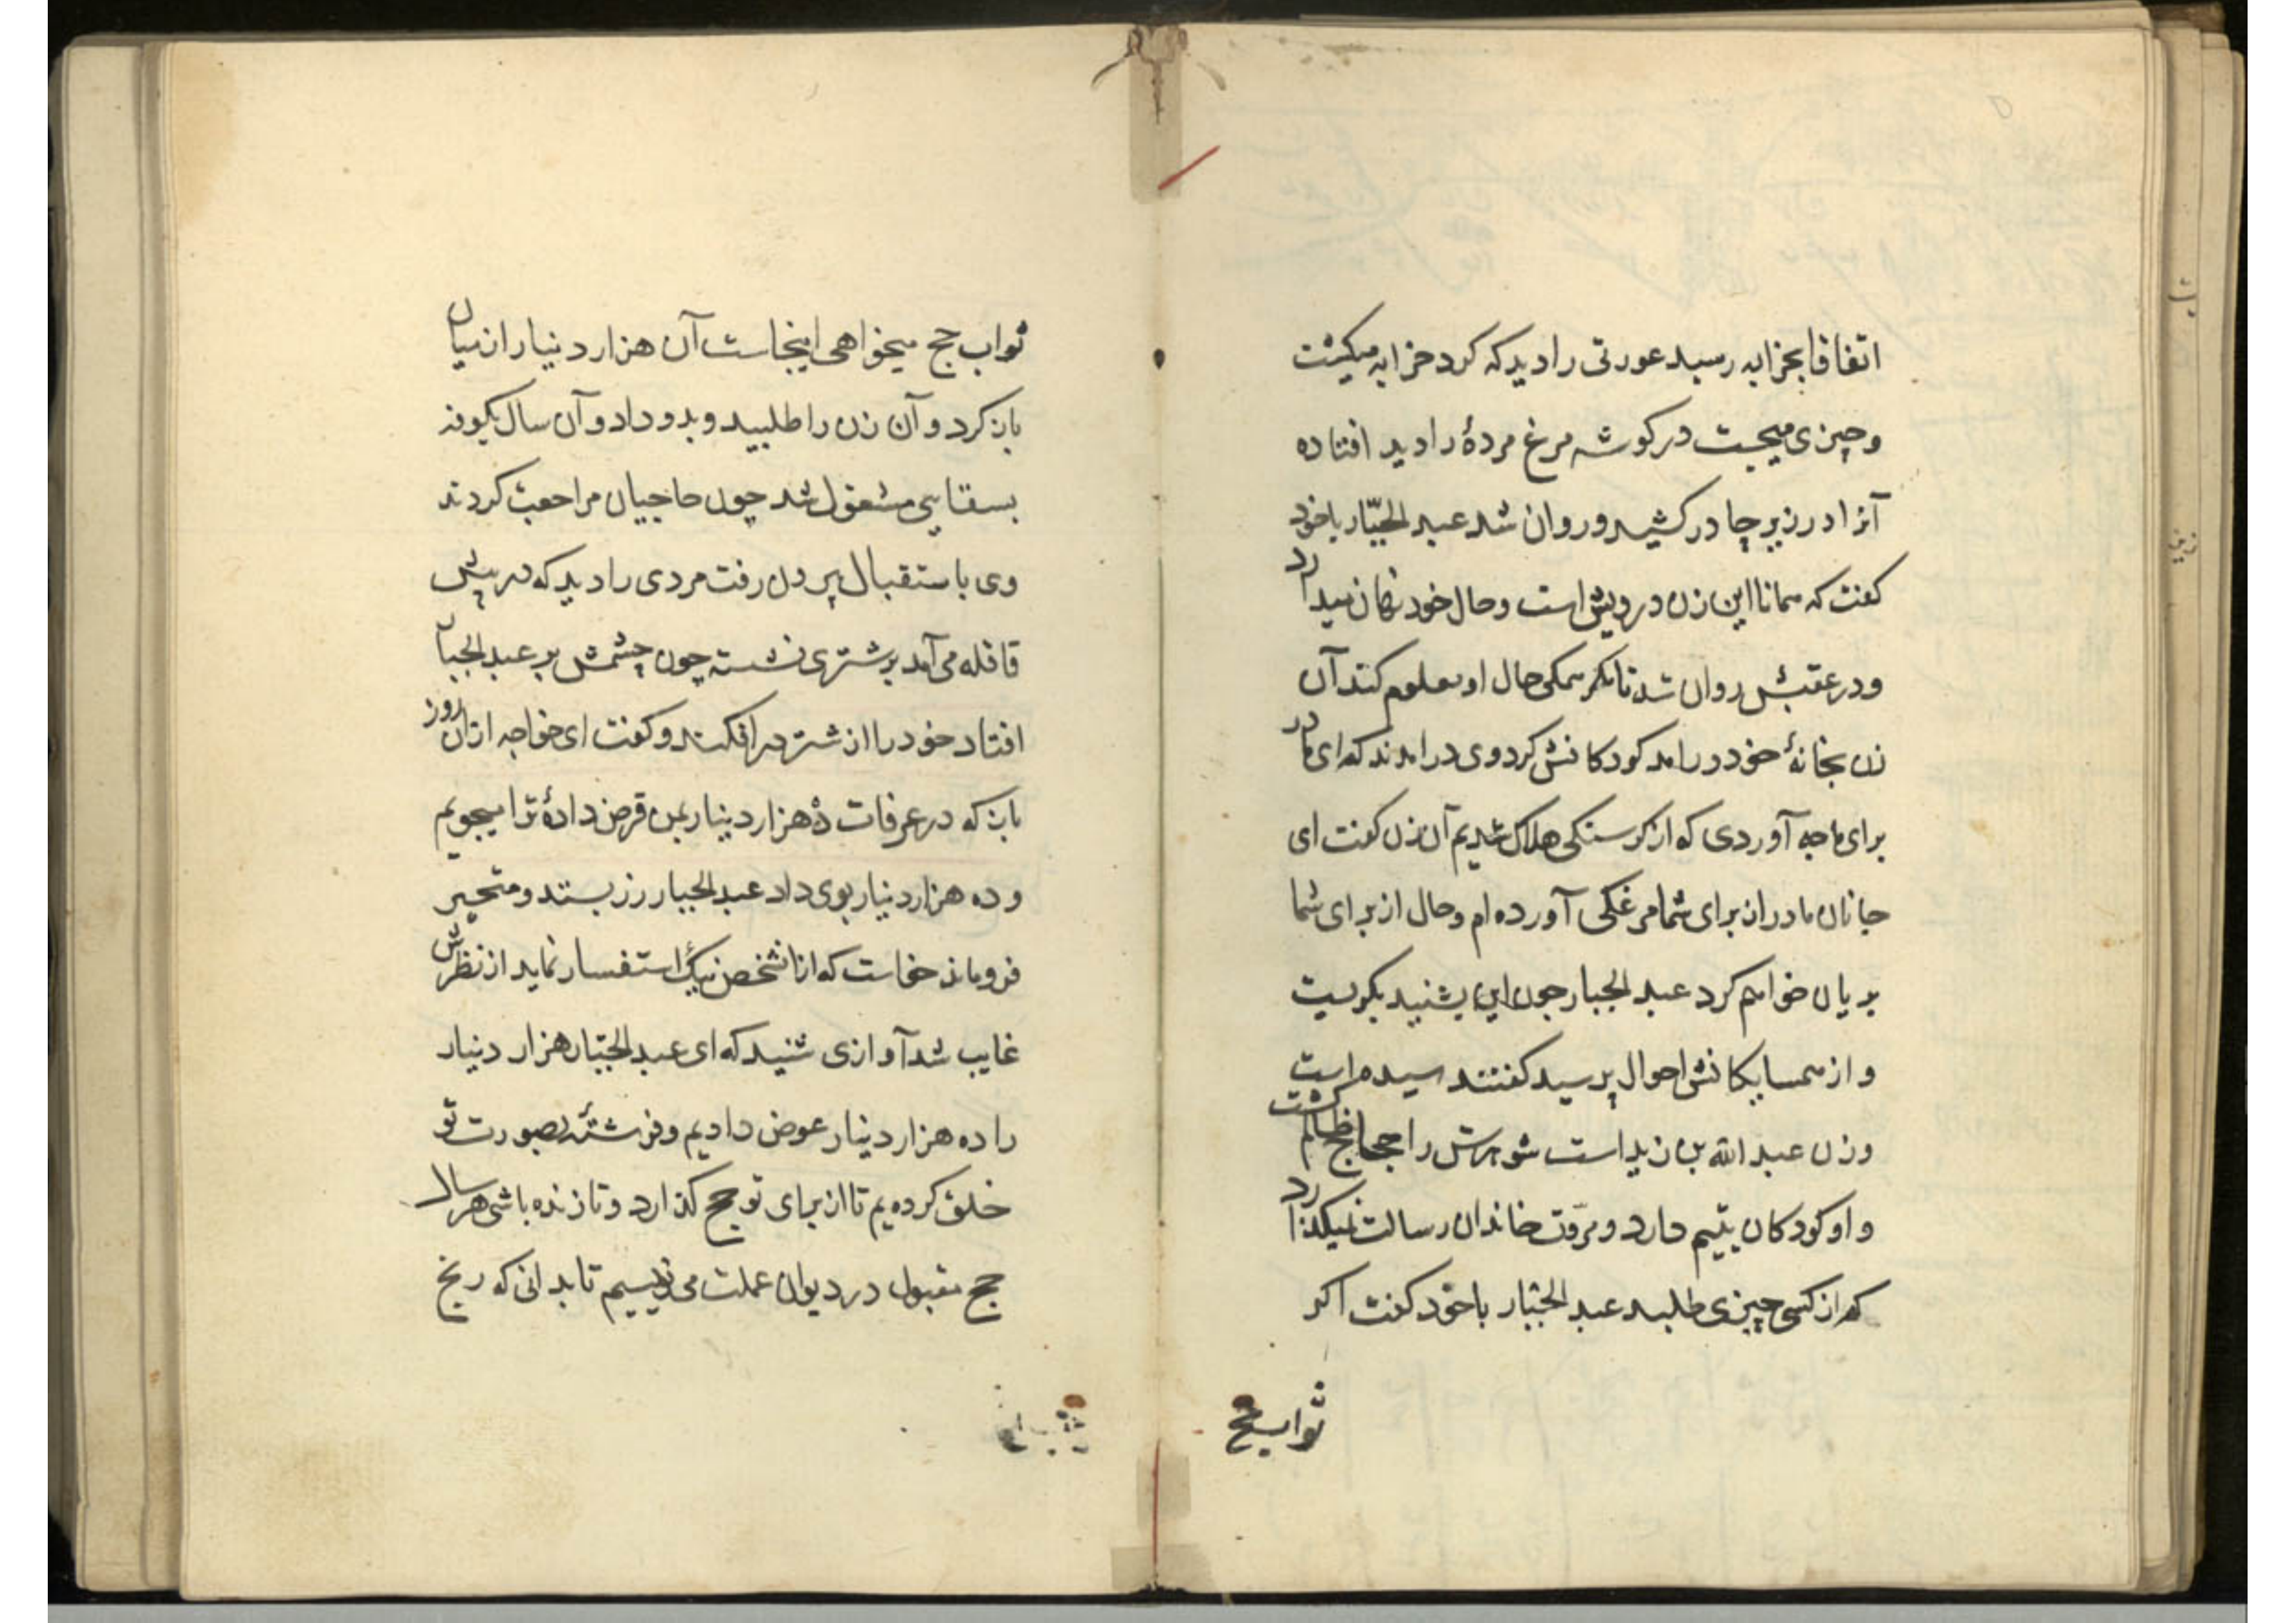 اتفاقا بخرابه رسید عورتی را دید که کرد خرابه میکشت
و چیزی میجست در کوشه مرغ مردهٔ را دید افتاده
آنرا در زیر چادر کشید و روان شد عبد الجبّار با خود
کفت که همانا این زن درویش است و حال خود نهان میدارد
و در عقبش روان شد تا بنکرد که حال او معلوم کند آن
زن بخانهٔ خود درامد کودکانش کرد وی درامدند که ای مادر
برای ما چه آوردی که از کرسنکی هلاک شدیم آن زن کفت ای
جانان مادران برای شما مرغکی آورده ام و حال از برای شما
بریان خواهم کرد عبد الجبار چون این بشنید بکریست
و از همسایکانش احوال پرسید کفتند سیده است
و زن عبد الله بن زید است شوهرش را حجاج ظالم کشت
و او کودکان یتیم دارد و مروّت خاندان رسالت نمیکذارد
که از کسی چیزی طلبد عبد الجبّار با خود کفت اکر
ثواب حج
ثواب حج میخواهی اینجاست آن هزار دینار از میان
باز کرد و آن زن را طلبید و بدو داد و آن سال بکوفه
بسقایی مشغول شد چون حاجیان مراجعت کردند
وی باستقبال بیرون رفت مردی را دید که در پیش
قافله می آمد بر شتری نشسته چون چشمش بر عبد الجبار
افتاد خود را از شتر در افکند و کفت ای خواجه از آن روز
باز که در عرفات ده هزار دینار بمن قرض دادهٔ ترا میجویم
و ده هزار دینار بوی داد عبد الجبار زر بستد و متحیر
فروماند خواست که از آن شخص نیک استفسار نماید از نظرش
غایب شد آوازی شنید که ای عبد الجبّار هزار دینار
را ده هزار دینار عوض دادیم و فرشتهٔ بصورت تو
خلق کرده یم تا از برای تو حج کذارد و تا زنده باشی هر سال
حج مقبول در دیوان عملت می نویسیم تا بدانی که رنج